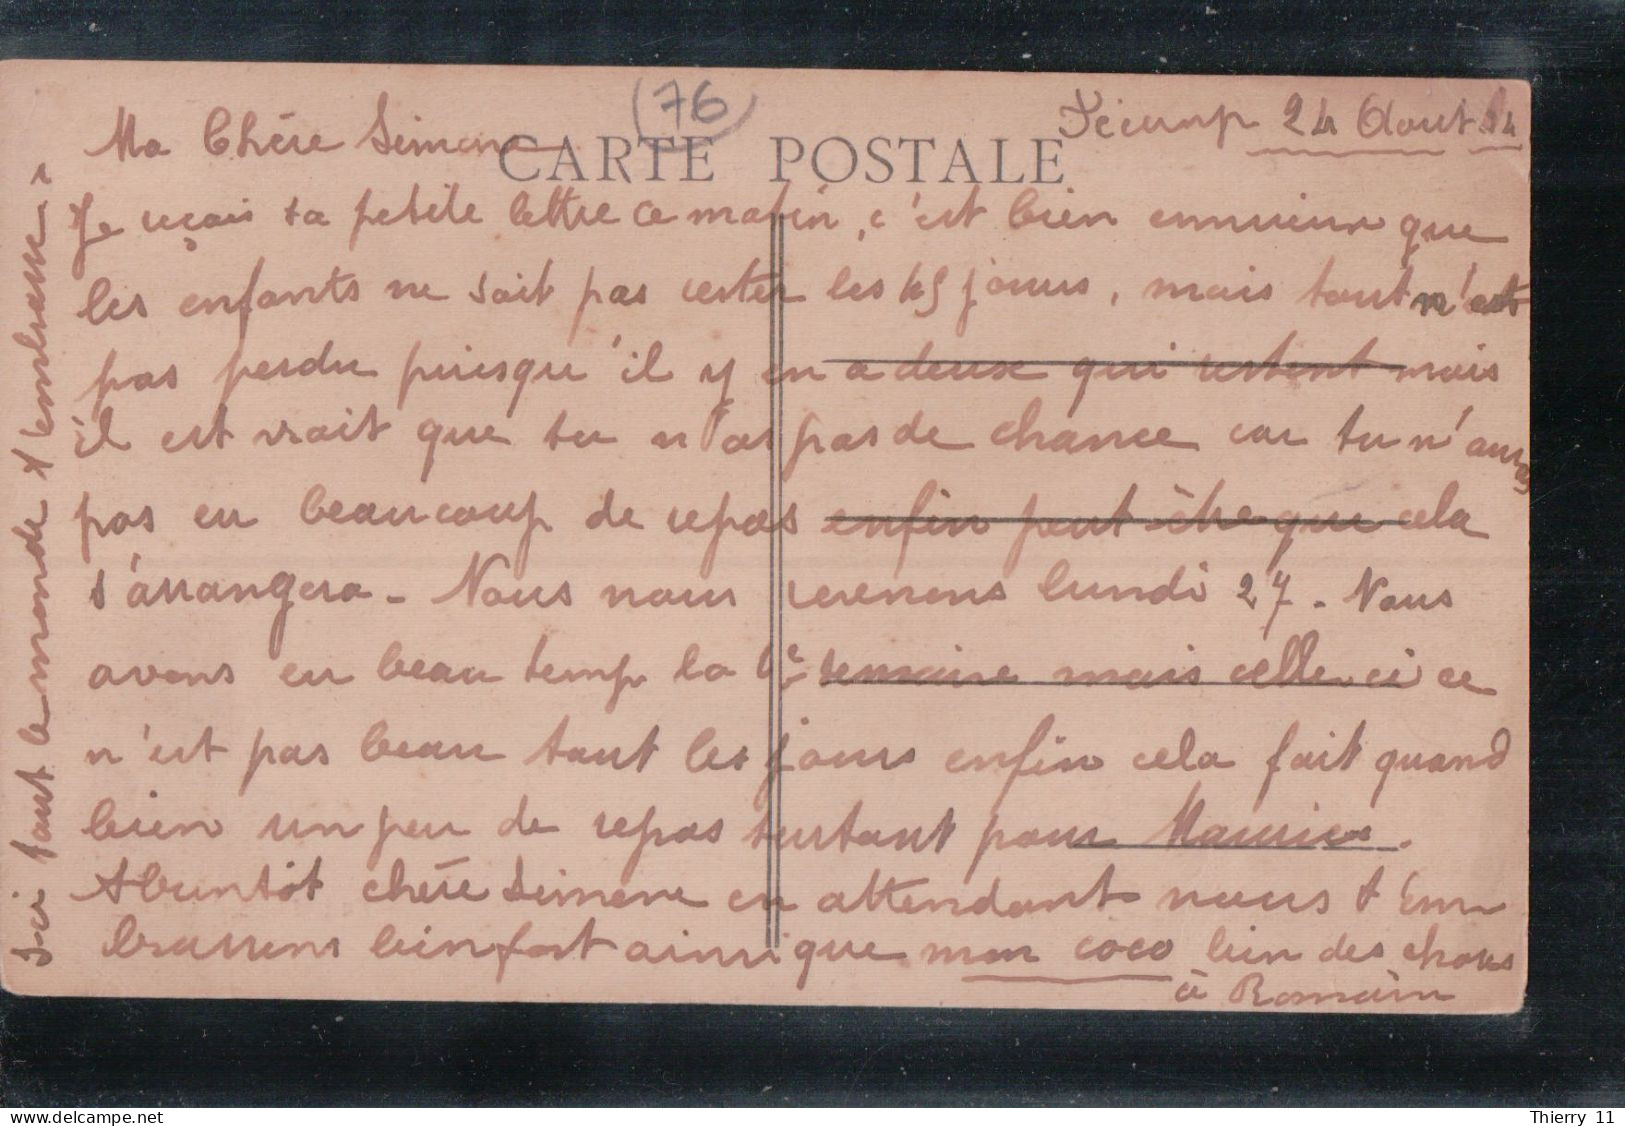 (76)
Fécamp 24 Aout 14
CARTE POSTALE
Ma Chère Simone
Je reçois ta petite lettre ce matin, c'est bien ennuieux que
les enfants ne soit pas rester les 15 jours, mais tout n'est
pas perdu puisqu'il y en a deux qui restent mais
il est vrait que tu n'as pas de chance car tu n'auras
pas eu beaucoup de repos enfin peut-être que cela
s'arrangera - Nous nous revenons lundi 27. Nous
avons eu beau temp la 1e semaine mais celle-ci ce
n'est pas beau tout les jours enfin cela fait quand
bien un peu de repos surtout pour Maurice.
A bientôt chère Simone en attendant nous t'em
brassons bien fort ainsi que mon coco bien des choses
à Romain
Ici tout le monde t'embrasse
Thierry 11
https://www.delcampe.net